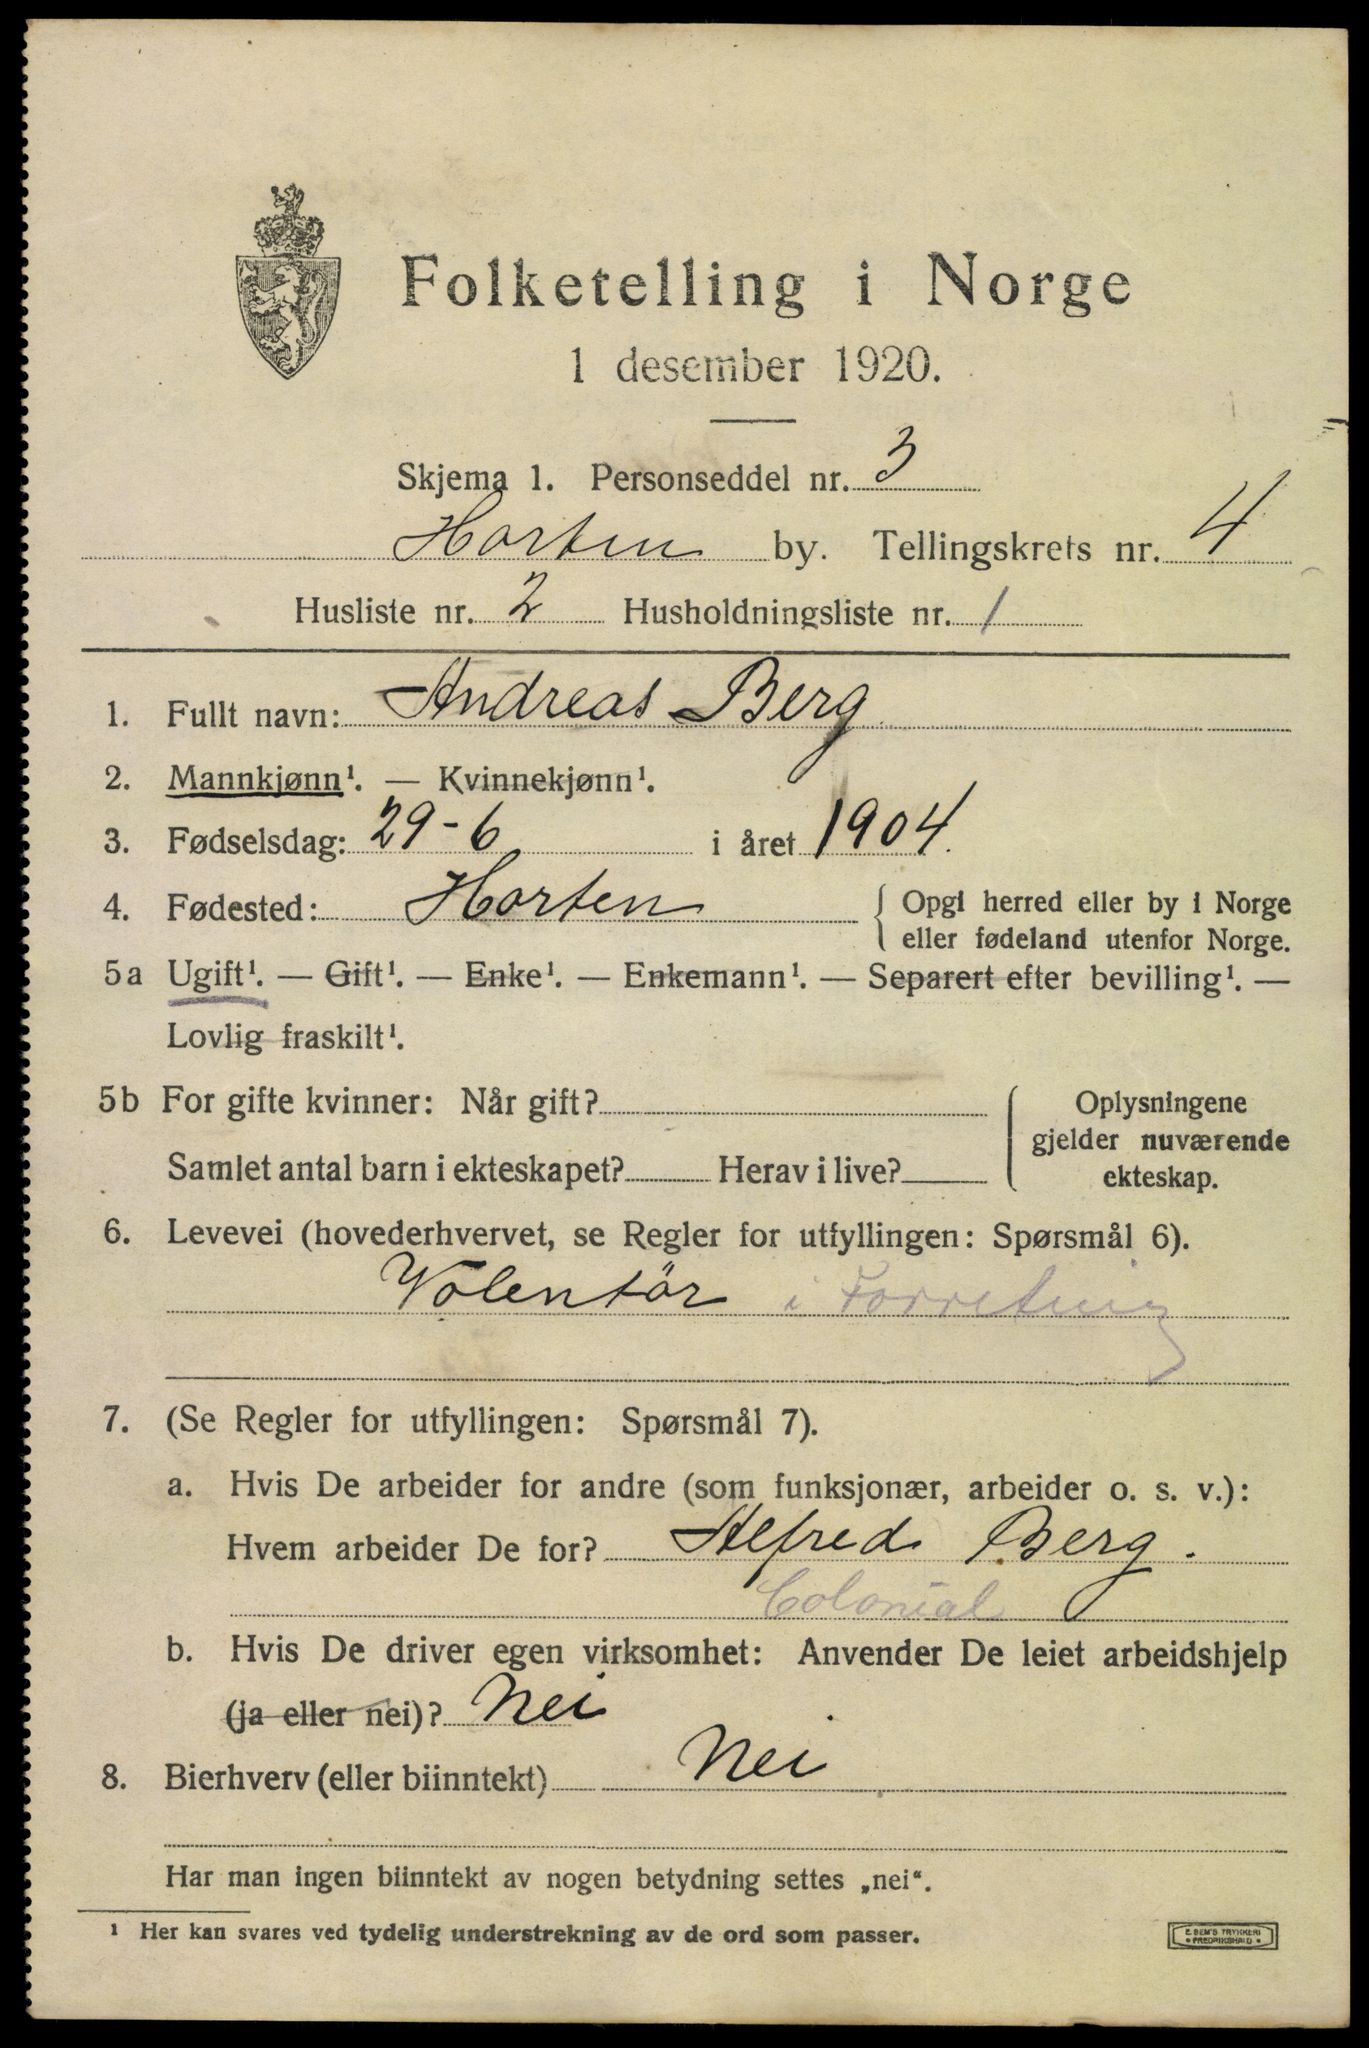 Folketelling i Norge
1 desember 1920.
Skjema 1. Personseddel nr. 3
Horten by. Tellingskrets nr. 4
Husliste nr. 2 Husholdningsliste nr. 1
1. Fullt navn: Andreas Berg
2. Mannkjønn¹. — Kvinnekjønn¹.
3. Fødselsdag: 29-6 i året 1904.
4. Fødested: Horten { Opgi herred eller by i Norge
eller fødeland utenfor Norge.
5a Ugift¹. — Gift¹. — Enke¹. — Enkemann¹. — Separert efter bevilling¹. —
Lovlig fraskilt¹.
5b For gifte kvinner: Når gift? Oplysningene
gjelder nuværende
Samlet antal barn i ekteskapet? Herav i live? ekteskap.
6. Levevei (hovederhvervet, se Regler for utfyllingen: Spørsmål 6).
Volentör i Forretning
7. (Se Regler for utfyllingen: Spørsmål 7).
a. Hvis De arbeider for andre (som funksjonær, arbeider o. s. v.):
Hvem arbeider De for? Alfred Berg.
Colonial
b. Hvis De driver egen virksomhet: Anvender De leiet arbeidshjelp
(ja eller nei)? Nei
8. Bierhverv (eller biinntekt) Nei
Har man ingen biinntekt av nogen betydning settes „nei“.
¹ Her kan svares ved tydelig understrekning av de ord som passer.
E. SEM'S TRYKKERI
• FREDRIKSHALD •